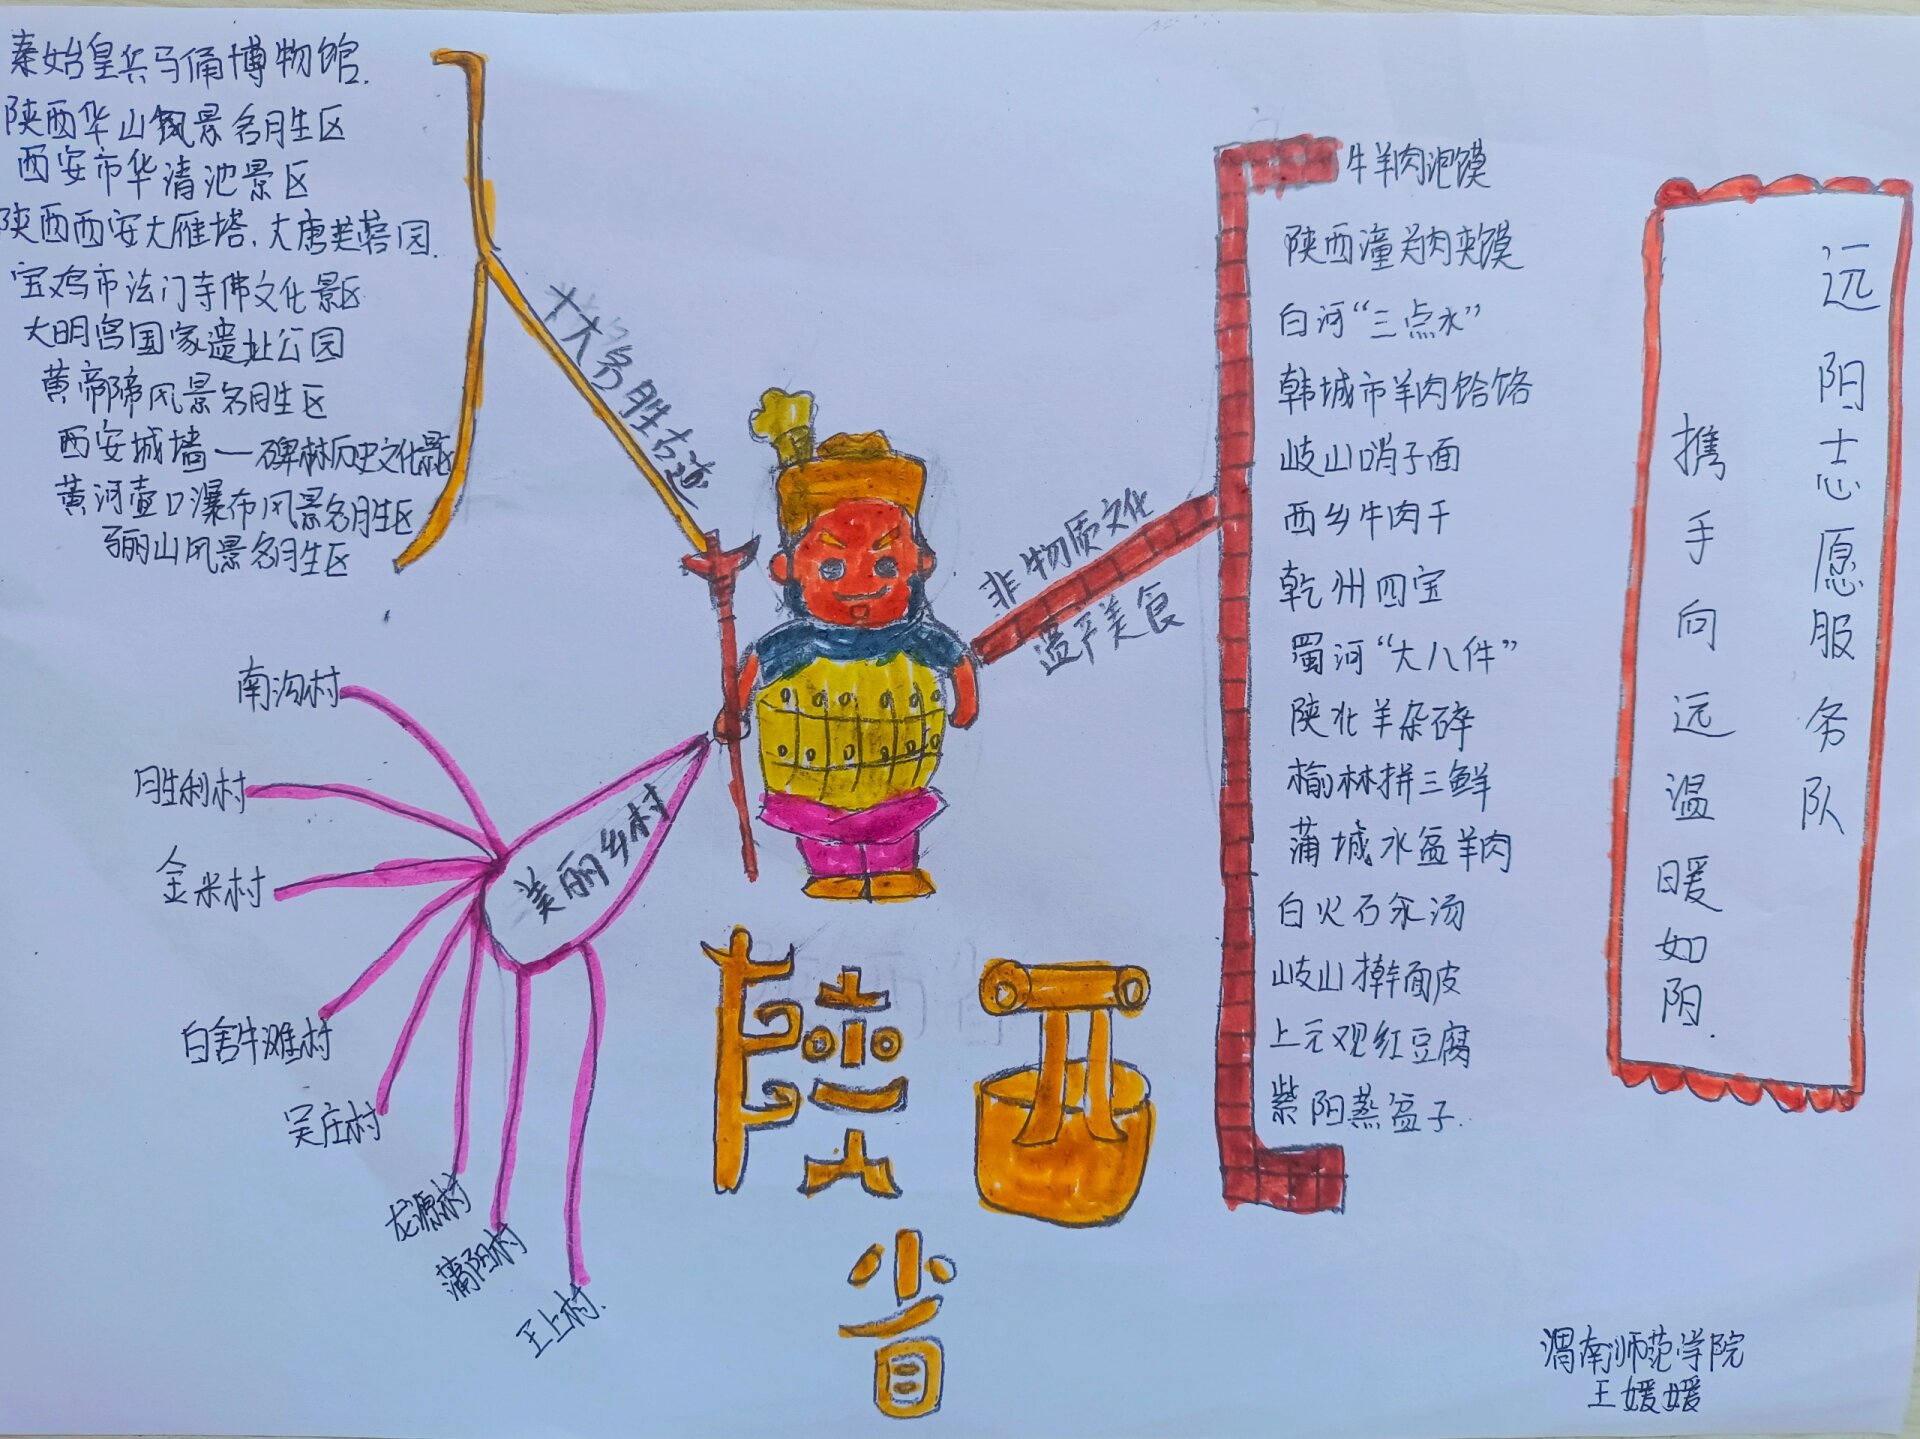 秦始皇兵马俑博物馆.
陕西华山风景名胜区
西安市华清池景区
陕西西安大雁塔、大唐芙蓉园.
宝鸡市法门寺佛文化景区
大明宫国家遗址公园
黄帝陵风景名胜区
西安城墙一碑林历史文化景区
黄河壶口瀑布风景名胜区
骊山风景名胜区
十大名胜古迹
非物质文化
遗产美食
牛羊肉泡馍
陕西潼关肉夹馍
白河“三点水”
韩城市羊肉饸饹
岐山哨子面
西乡牛肉干
乾州四宝
蜀河“大八件”
陕北羊杂碎
榆林拼三鲜
蒲城水盆羊肉
白火石汆汤
岐山擀面皮
上元观红豆腐
紫阳蒸盆子.
美丽乡村
南沟村
胜利村
金米村
白舍牛滩村
吴庄村
龙源村
蒲阳村
王上村.
陕西
省
远阳志愿服务队
携手向远温暖如阳.
渭南师范学院
王媛媛